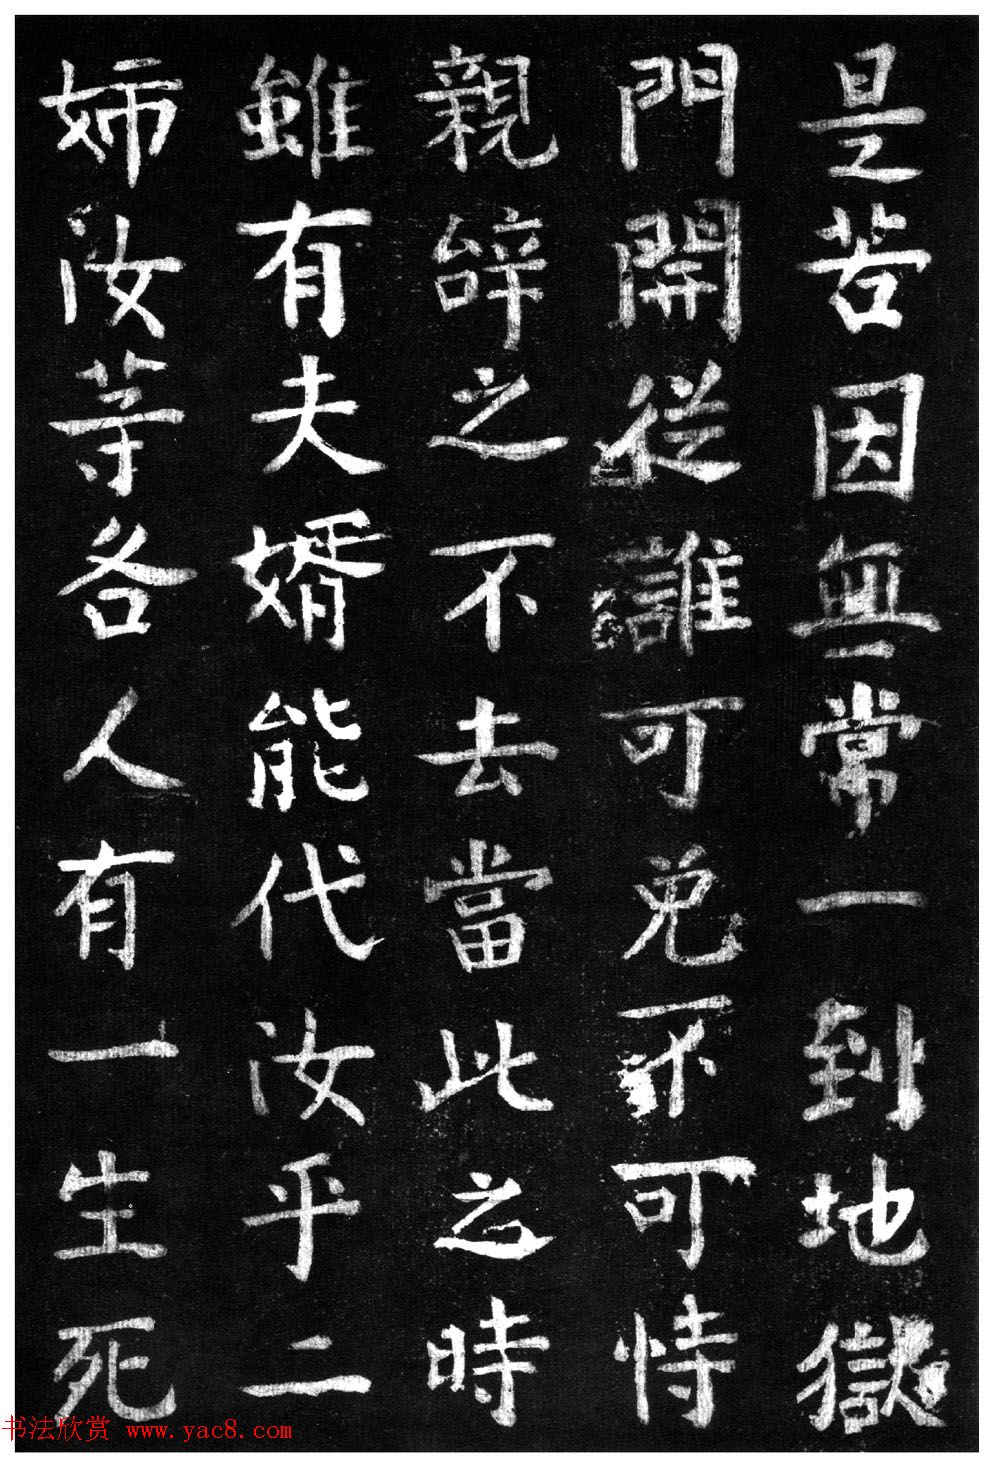 是苦因無常一到地獄
門開從誰可免不可恃
親辞之不去當此之時
雖有夫婿能代汝乎二
姉汝等各人有一生死
书法欣赏 www.yac8.com